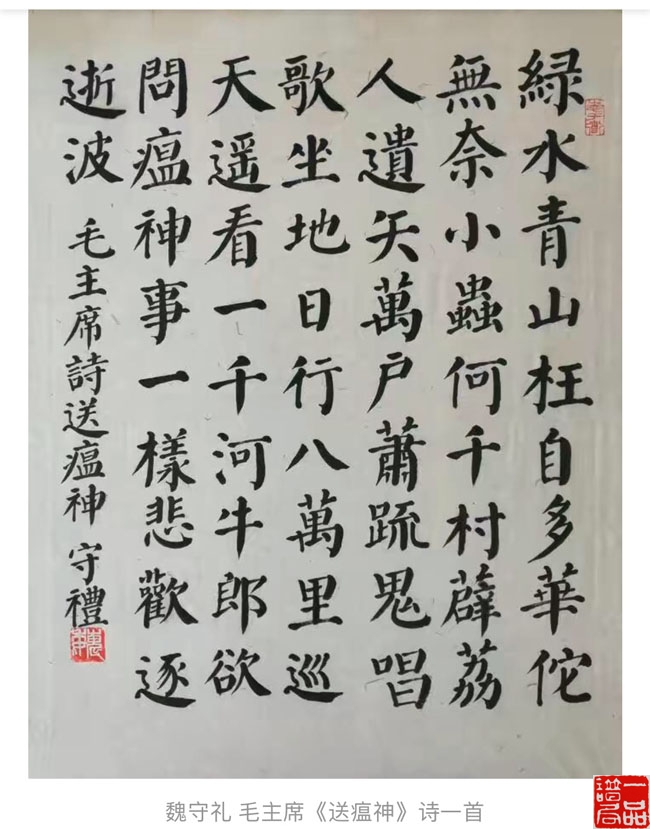 緑水青山枉自多華佗
無奈小蟲何千村薜荔
人遺矢萬户蕭疏鬼唱
歌坐地日行八萬里巡
天遥看一千河牛郎欲
問瘟神事一樣悲歡逐
逝波 毛主席詩送瘟神 守禮
魏守礼 毛主席《送瘟神》诗一首